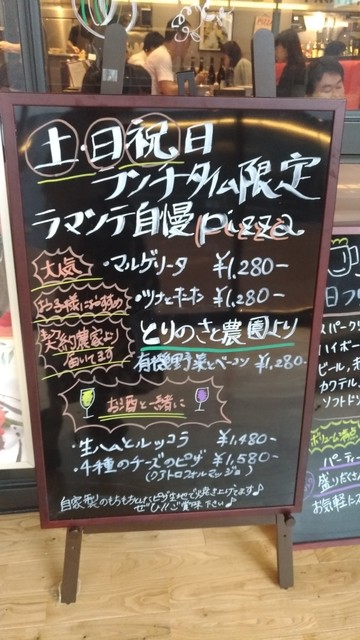 土・日祝日
ランチタイム限定
ラマンテ自慢 pizza
大人気
・マルゲリータ ¥1,280-
お子様におすすめ
・ツナとコーン ¥1,280-
契約農家より
届いてます
とりのさと農園より
有機野菜とベーコン ¥1,280-
お酒と一緒に
・生ハムとルッコラ ¥1,480-
・4種のチーズのピザ ¥1,580-
(クアトロフォルマッジョ)
自家製のもちもちしたピザ生地で焼き上げてます♪
ぜひ!!ご賞味下さい♪
スパーク
ハイボー
ビール、
カクテル、
ソフトド
ボリューム満点
パーティー
盛りだくさん
お気軽にス